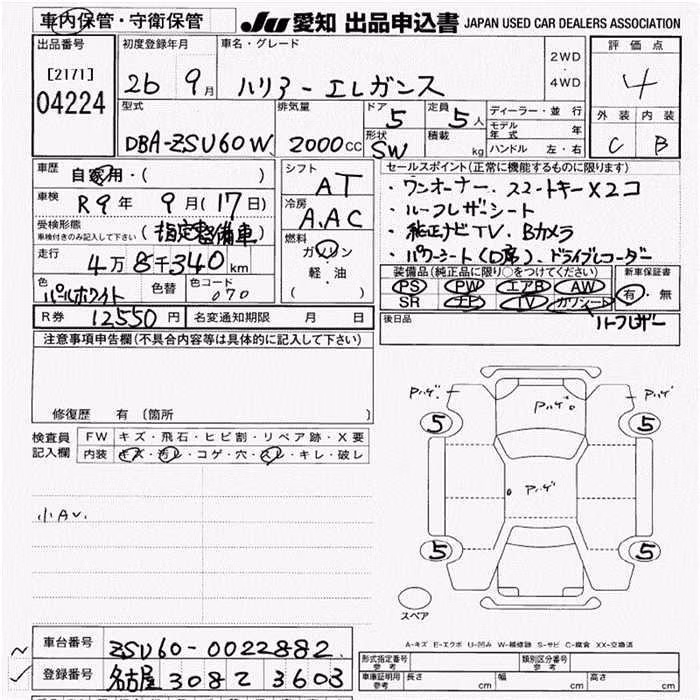 車内保管・守衛保管
JU 愛知 出品申込書 JAPAN USED CAR DEALERS ASSOCIATION
出品番号
[2171]
04224
初度登録年月
26 9月
車名・グレード
ハリアー エレガンス
2WD
・
4WD
評価点
4
外装 内装
C B
型式
DBA-ZSU60W
排気量
2000cc
ドア
5
定員
5人
形状
SW
積載
kg
ディーラー・並行
モデル年式 年
ハンドル 左・右
車歴
自家用・( )
車検
R9年 9月(17日)
受検形態
車検付きのみ記入して下さい
(指定整備車)
走行
4万8千340km
色
パールホワイト
色替
色コード
070
シフト
AT
冷房
AAC
燃料
ガソリン
軽・油
( )
セールスポイント(正常に機能するものに限ります)
・ワンオーナー.スマートキーX2コ
・ルーフレザーシート
・純正ナビTV.Bカメラ
・パワーシート(D席).ドライブレコーダー
装備品(純正品に限り○をつけてください)
PS PW エアB AW
SR ナビ TV カワシート
新車保証書
有・無
R券 12550円
名変通知期限 月 日
後日品
ルーフレザー
注意事項申告欄(不具合内容等は具体的に記入して下さい)
修復歴 有〔箇所 〕
検査員
記入欄
FW キズ・飛石・ヒビ割・リペア跡・X要
内装 キズ・汚レ・コゲ・穴・スレ・キレ・破レ
小AU.
アハゲ アハゲ
アハゲ
アハゲ
5 5
5 5
スペア
A-キズ E-エクボ U-凹み W-補修跡 S-サビ C-腐食 XX-交換済
車台番号
ZSU60-0022882
登録番号
名古屋 308て 3603
形式指定番号
参考
類別区分番号
参考
車庫証明用
参考
長さ cm 幅 cm 高さ cm